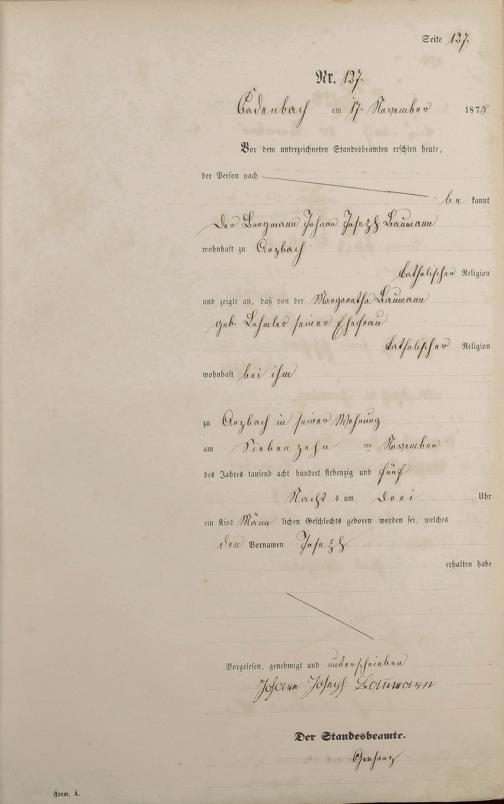 Seite 127.
Nr. 127.
Cadenbach am 17. November 1875
Vor dem unterzeichneten Standesbeamten erschien heute,
der Person nach
be kannt
der Bergmann Johann Joseph Baumann
wohnhaft zu Arzbach
katholischer Religion
und zeigte an, daß von der Margaretha Baumann
geb. Lehmler seiner Ehefrau
katholischer Religion
wohnhaft bei ihm
zu Arzbach in seiner Wohnung
am Siebenzehn ten November
des Jahres tausend acht hundert siebenzig und fünf
Nachts um drei Uhr
ein Kind Männ lichen Geschlechts geboren worden sei, welches
den Vornamen Joseph
erhalten habe
Vorgelesen, genehmigt und unterschrieben
Johann Joseph Baumann
Der Standesbeamte.
Form. A.